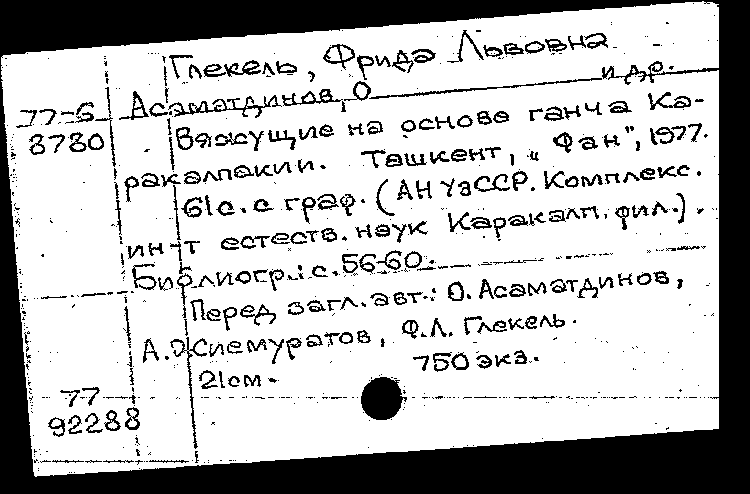 Глекель, Фрида Львовна
и др.
77-6 Асаматдинов, О
3730 Вяжущие на основе ганча Ка-
ракалпакии. Ташкент, „Фан", 1977.
61с. с граф. (АН УзССР. Комплекс.
ин-т естеств. наук Каракалп. фил.).
Библиогр.: с. 56-60.
Перед загл. авт.: О. Асаматдинов,
А. О. Сиемуратов, Ф.Л. Глекель.
21см. 750 экз.
77
92288